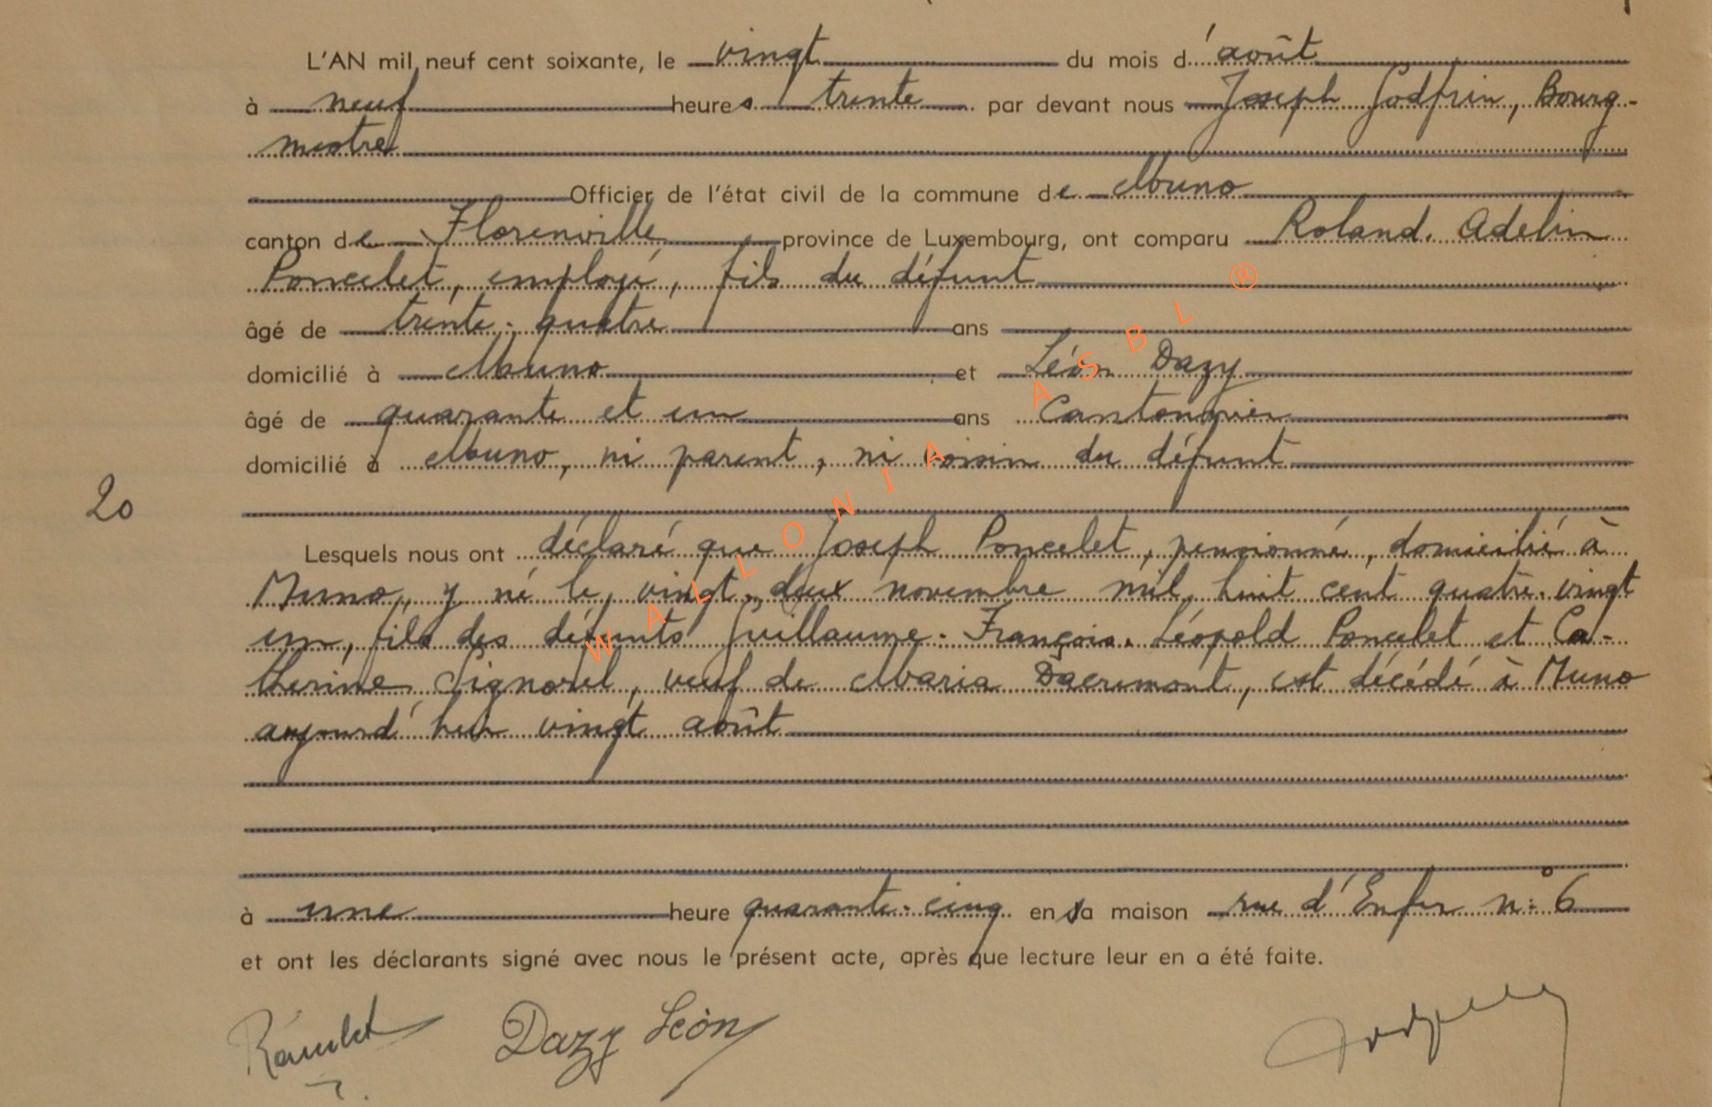 L'AN mil neuf cent soixante, le vingt du mois d'août
à neuf heures trente par devant nous Joseph Godfrin, Bourg-
mestre
Officier de l'état civil de la commune de Muno
canton de Florenville province de Luxembourg, ont comparu Roland. Adelin
Poncelet, employé, fils du défunt
âgé de trente-quatre ans
domicilié à Muno et Léon Dazy
âgé de quarante et un ans Cantonnier
domicilié à Muno, ni parent, ni voisin du défunt
20
Lesquels nous ont déclaré que Joseph Poncelet, pensionné, domicilié à
Muno, y né le vingt-deux novembre mil huit cent quatre-vingt
un, fils des défunts Guillaume-François-Léopold Poncelet et Ca-
therine Signorel, veuf de Maria Dacremont, est décédé à Muno
aujourd'hui vingt août
à une heure quarante-cinq en sa maison rue d'Enfer n° 6
et ont les déclarants signé avec nous le présent acte, après que lecture leur en a été faite.
Dazy Léon
WALLONIA ASBL ®